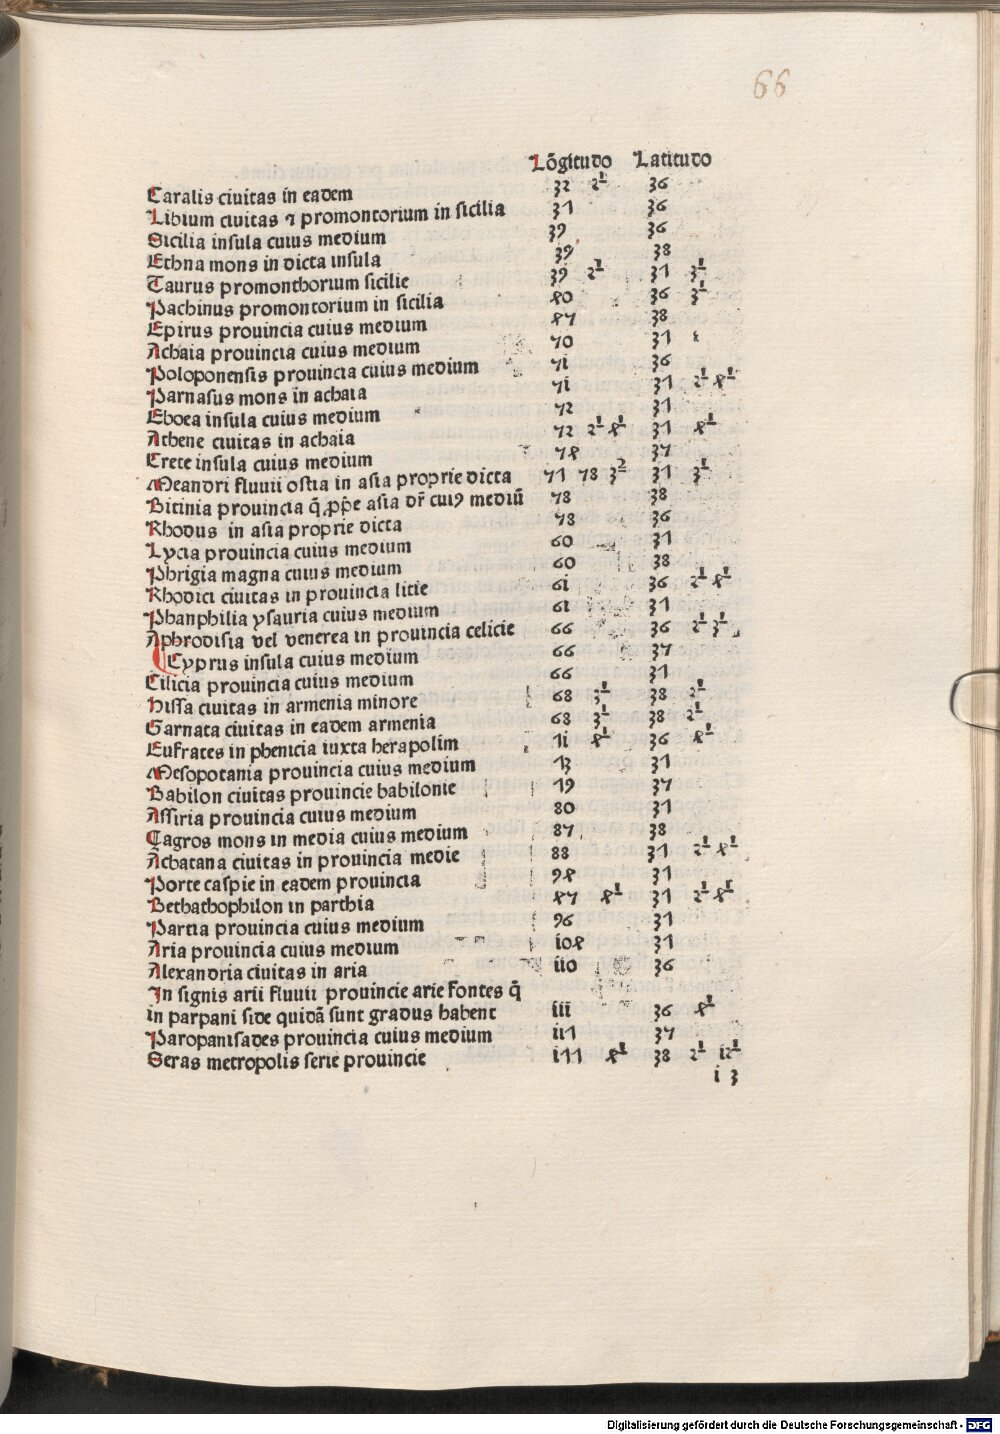 66
Lõgitudo Latitudo
Caralis ciuitas in eadem 32 2 1/ 36
Libium ciuitas ⁊ promontorium in sicilia 31 36
Sicilia insula cuius medium 39 36
Ethna mons in dicta insula 39 38
Taurus promonthorium sicilie 39 2 1/ 31 3 1/
Pachinus promontorium in sicilia 40 36 3 1/
Epirus prouincia cuius medium 47 38
Achaia prouincia cuius medium 70 31
Poloponensis prouincia cuius medium 7i 36
Parnasus mons in achaia 7i 31 2 1/ 4 1/
Eboea insula cuius medium 72 31
Athene ciuitas in achaia 72 2 1/ 4 1/ 31 4 1/
Crete insula cuius medium 74 37
Meandri fluuii ostia in asia proprie dicta 71 78 3 2/ 31 3 1/
Bitinia prouincia q̃ ꝓp̃e asia dr̃ cuiꝰ mediũ 78 38
Rhodus in asia proprie dicta 78 36
Lycia prouincia cuius medium 60 31
Phrigia magna cuius medium 60 38
Rhodici ciuitas in prouincia litie 6i 36 2 1/ 4 1/
Phanphilia ysauria cuius medium 6i 31
Aphrodisia vel venerea in prouincia celicie 66 36 2 1/ 3 1/
Cyprus insula cuius medium 66 37
Cilicia prouincia cuius medium 66 31
Hissa ciuitas in armenia minore 68 3 1/ 38 2 1/
Garnata ciuitas in eadem armenia 68 3 1/ 38 2 1/
Eufrates in phenicia iuxta herapolim 1i 4 1/ 36 4 1/
Mesopotania prouincia cuius medium 13 31
Babilon ciuitas prouincie babilonie 19 37
Assiria prouincia cuius medium 80 31
Cagros mons in media cuius medium 87 38
Achatana ciuitas in prouincia medie 88 31 2 1/ 4 1/
Porte caspie in eadem prouincia 94 31
Bethathophilon in parthia 47 4 1/ 31 2 1/ 4 1/
Partia prouincia cuius medium 96 31
Aria prouincia cuius medium i04 31
Alexandria ciuitas in aria ii0 36
In signis arii fluuii prouincie arie fontes q̃
in parpani side quidã sunt gradus habent iii 36 4 1/
Paropanisades prouincia cuius medium ii1 37
Seras metropolis serie prouincie i11 4 1/ 38 2 1/ i2 1/
i 3
Digitalisierung gefördert durch die Deutsche Forschungsgemeinschaft - DFG